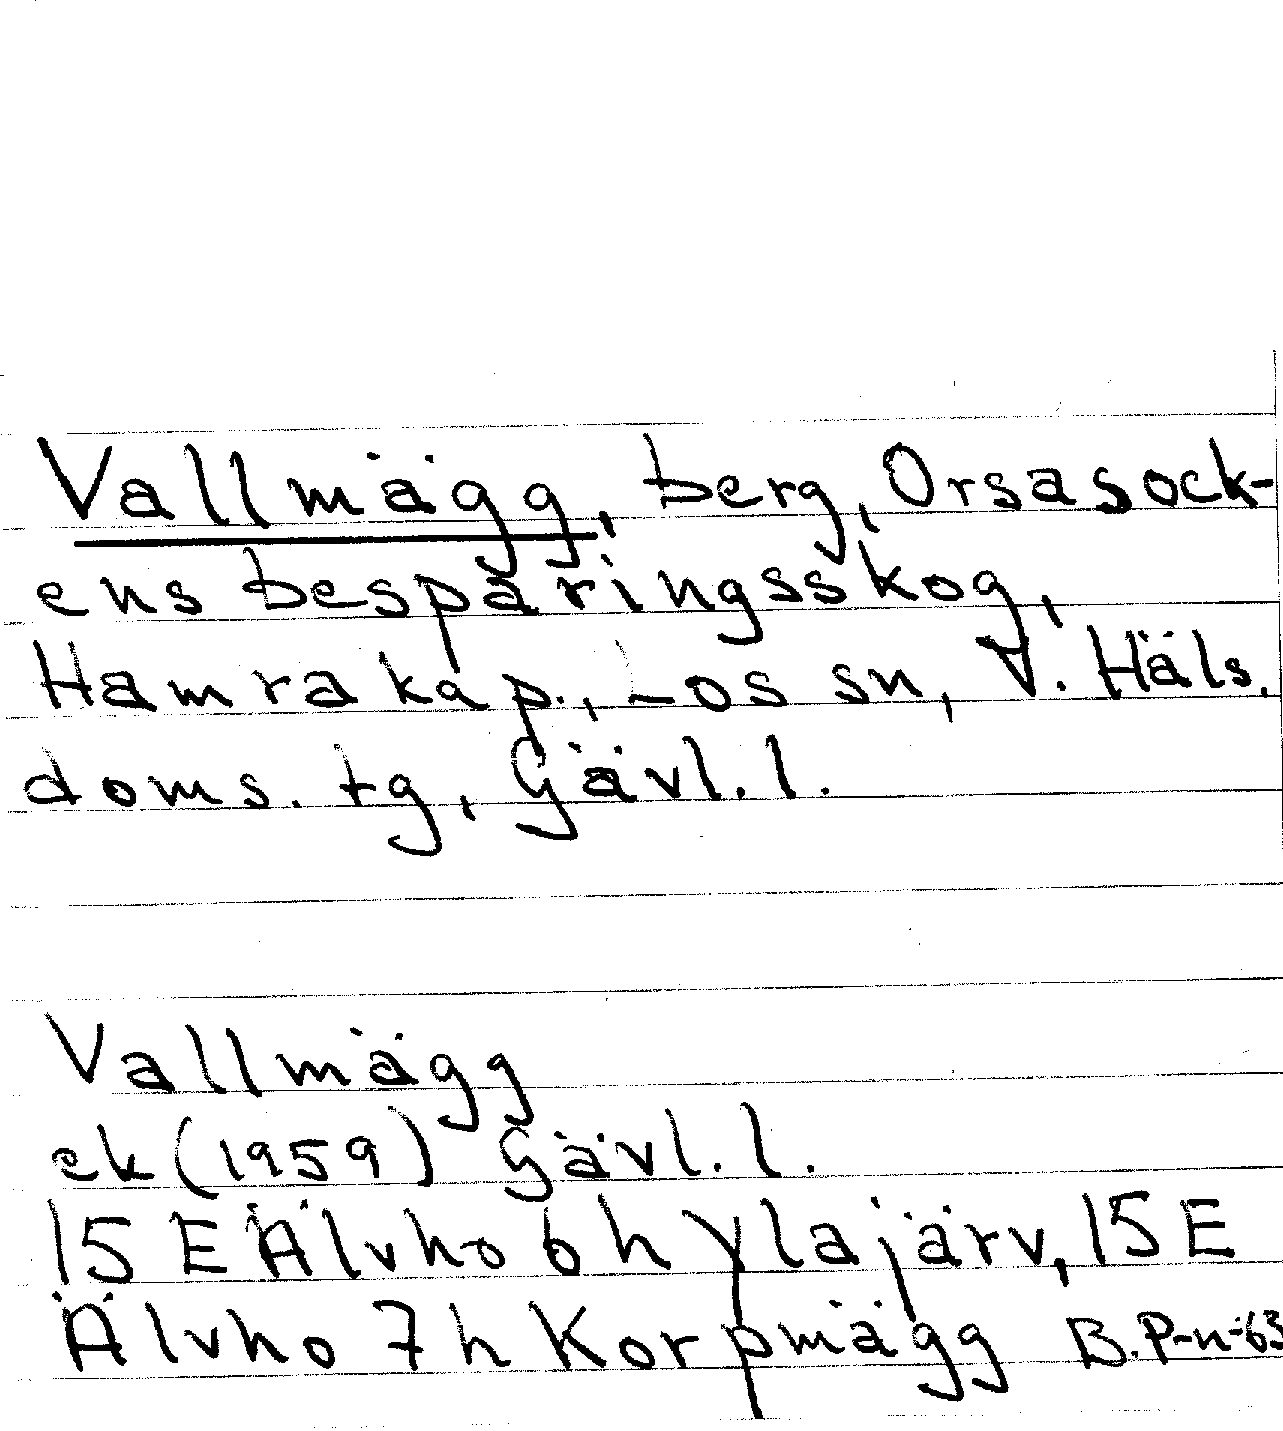 Vallmägg, berg, Orsasock-
ens besparingsskog,
Hamra kap., Los sn, V. Häls.
doms. tg, Gävl. l.
Vallmägg
ek (1959) Gävl. l.
15 E Älvho 6 h Ylajärv, 15 E
Älvho 7 h Korpmägg B. P-n-63